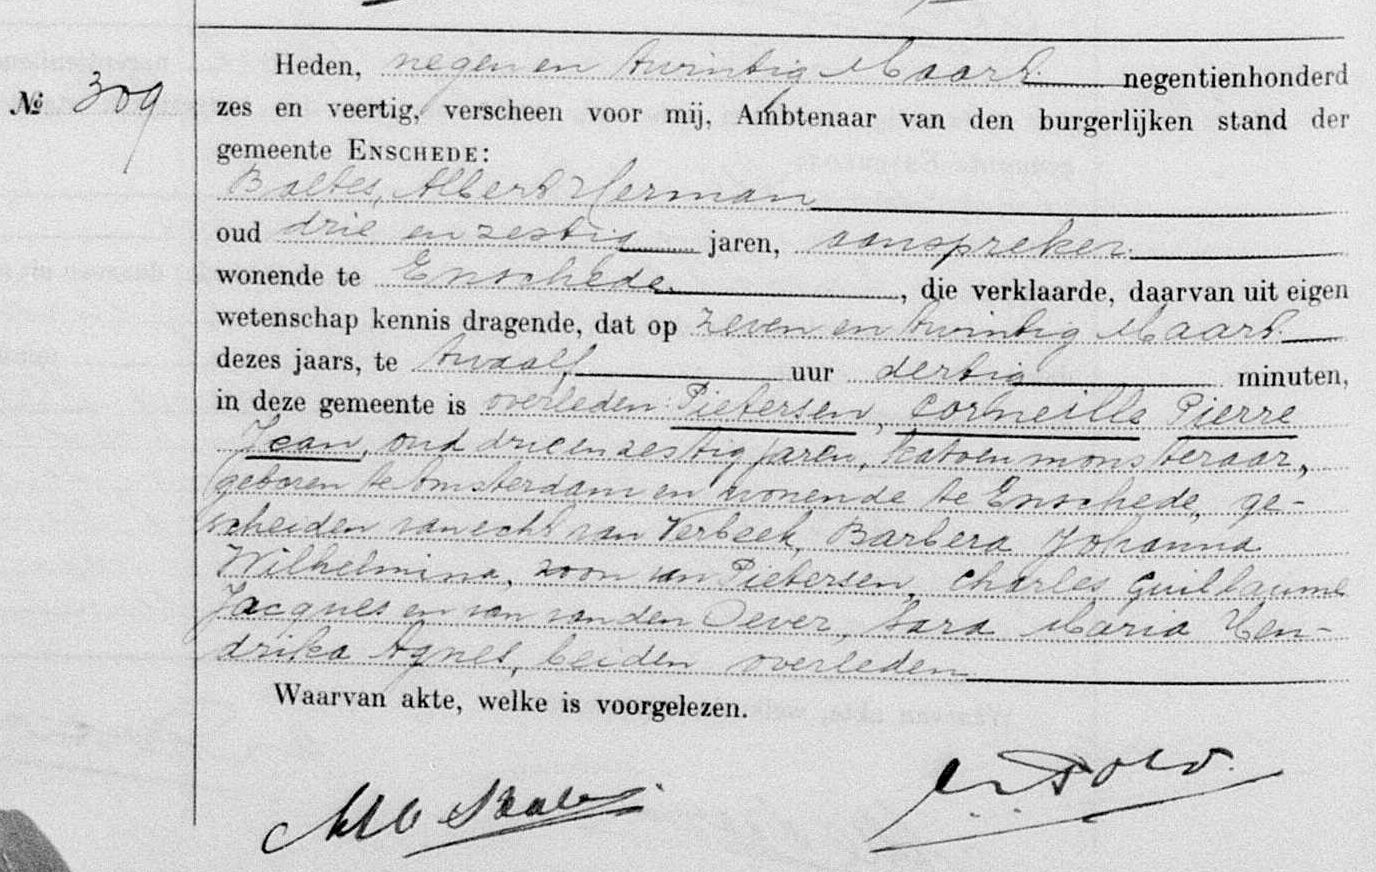 Heden, negen en twintig Maart negentienhonderd
№ 309
zes en veertig, verscheen voor mij, Ambtenaar van den burgerlijken stand der
gemeente ENSCHEDE:
Baltes, Albert Herman
oud drie en zestig jaren, aanspreker
wonende te Enschede, die verklaarde, daarvan uit eigen
wetenschap kennis dragende, dat op zeven en twintig Maart
dezes jaars, te twaalf uur dertig minuten,
in deze gemeente is overleden: Pietersen, Corneille Pierre
Jean, oud drie en zestig jaren, katoenmonsteraar,
geboren te Amsterdam en wonende te Enschede, ge-
scheiden van echt van Verbeek, Barbera Johanna
Wilhelmina, zoon van Pietersen, Charles Guillaume
Jacques en van van den Oever, Sara Maria Hen-
drika Agnes, beiden overleden
Waarvan akte, welke is voorgelezen.